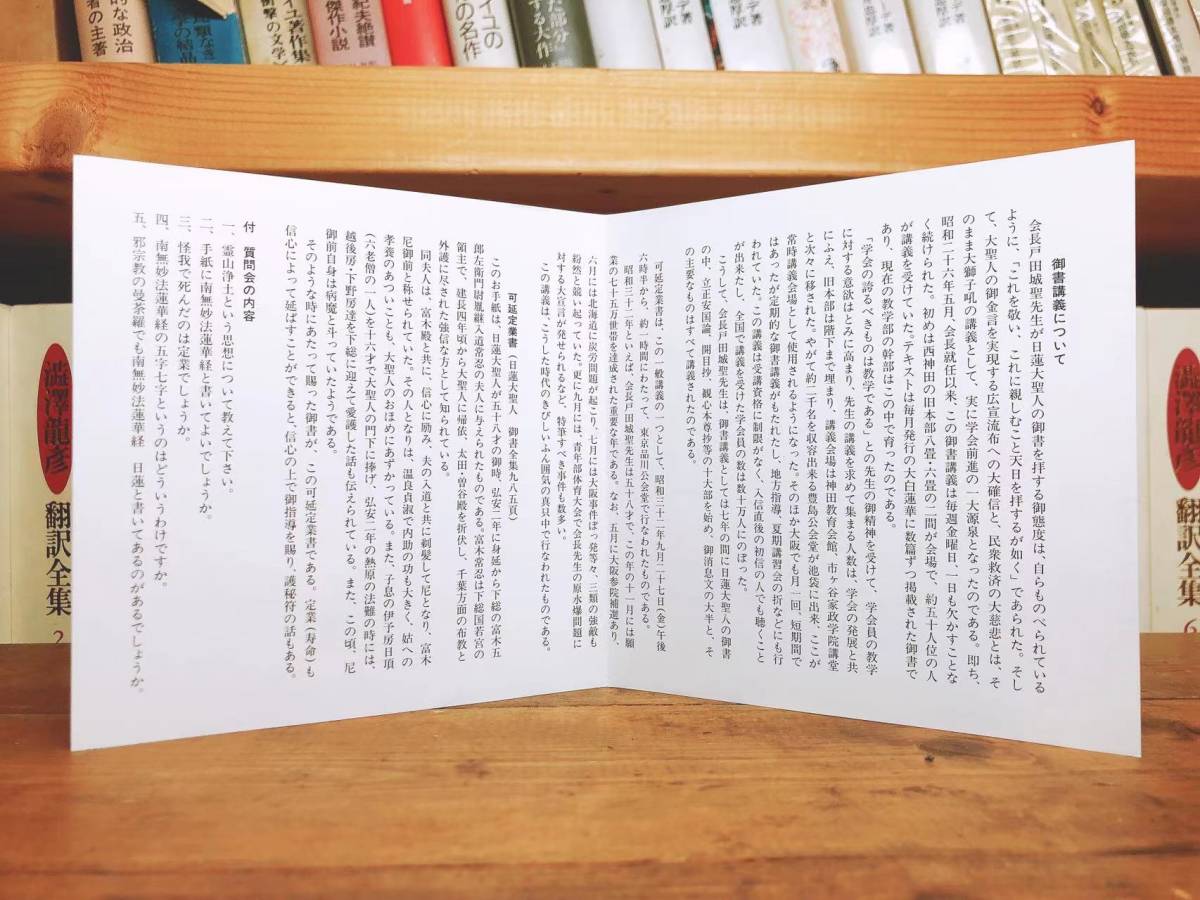 御書講義について
会長戸田城聖先生が日蓮大聖人の御書を拝する御態度は、自らものべられている
ように、「これを敬い、これに親しむこと天日を拝するが如く」であられた。そし
て、大聖人の御金言を実現する広宣流布への大確信と、民衆救済の大慈悲とは、そ
のまま大獅子吼の講義として、実に学会前進の一大源泉となったのである。即ち、
昭和二十六年五月、会長就任以来、この御書講義は毎週金曜日、一日も欠かすことな
く続けられた。初めは西神田の旧本部八畳・六畳の二間が会場で、約五十人位の人
が講義を受けていた。テキストは毎月発行の大白蓮華に数篇ずつ掲載された御書で
あり、現在の教学部の幹部はこの中で育ったのである。
「学会の誇るべきものは教学である」との先生の御精神を受けて、学会員の教学
に対する意欲はとみに高まり、先生の講義を求めて集まる人数は、学会の発展と共
にふえ、旧本部は階下まで埋まり、講義会場は神田教育会館、市ヶ谷家政学院講堂
と次々に移された。やがて約二千名を収容出来る豊島公会堂が池袋に出来、ここが
常時講義会場として使用されるようになった。そのほか大阪でも月一回、短期間で
はあったが定期的な御書講義がもたれたし、地方指導、夏期講習会の折などにも行
われていた。この講義は受講資格に制限がなく、入信直後の初信の人でも聴くこと
が出来たし、全国で講義を受けた学会員の数は数十万人にのぼった。
こうして、会長戸田城聖先生は、御書講義としては七年の間に日蓮大聖人の御書
の中、立正安国論、開目抄、観心本尊抄等の十大部を始め、御消息文の大半と、そ
の主要なものはすべて講義されたのである。
可延定業書は、この一般講義の一つとして、昭和三十二年九月二十七日(金)午後
六時半から、約一時間にわたって、東京品川公会堂で行なわれたものである。
昭和三十二年といえば、会長戸田城聖先生は五十八才で、この年の十一月には願
業の七十五万世帯を達成された重要な年である。なお、五月に大阪参院補選あり、
六月には北海道に炭労問題が起こり、七月には大阪事件ぼっ発等々、三類の強敵も
紛然と競い起っていた。更に九月には、青年部体育大会で会長先生の原水爆問題に
対する大宣言が発せられるなど、特筆すべき事件も数多い。
この講義は、こうした時代のきびしいふん囲気の真只中で行なわれたものである。
可延定業書(日蓮大聖人 御書全集九八五頁)
このお手紙は、日蓮大聖人が五十八才の御時、弘安二年に身延から下総の富木五
郎左衛門尉胤継入道常忍の夫人に与えられたものである。富木常忍は下総国若宮の
領主で、建長四年頃から大聖人に帰依、太田・曽谷殿を折伏し、千葉方面の布教と
外護に尽された強信な方として知られている。
同夫人は、富木殿と共に、信心に励み、夫の入道と共に剃髪して尼となり、富木
尼御前と称せられていた。その人となりは、温良貞淑で内助の功も大きく、姑への
孝養のあついことも、大聖人のおほめにあずかっている。また、子息の伊予房日頂
(六老僧の一人)を十六才で大聖人の門下に捧げ、弘安二年の熱原の法難の時には、
越後房・下野房達を下総に迎えて愛護した話も伝えられている。また、この頃、尼
御前自身は病魔と斗っていたようである。
そのような時にあたって賜った御書が、この可延定業書である。定業(寿命)も
信心によって延ばすことができると、信心の上で御指導を賜り、護秘符の話もある。
付 質問会の内容
一、霊山浄土という思想について教えて下さい。
二、手紙に南無妙法蓮華経と書いてよいでしょうか。
三、怪我で死んだのは定業でしょうか。
四、南無妙法蓮華経の五字七字というのはどういうわけですか。
五、邪宗教の曼荼羅でも南無妙法蓮華経 日蓮と書いてあるのがあるでしょうか。
澁澤龍彦
翻訳全集
2
澁澤龍彦
翻訳全集
6